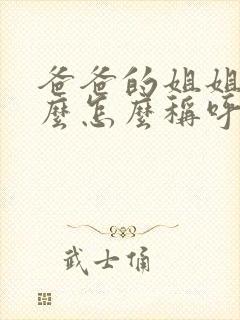 爸爸的姐姐
麼怎麼稱呼
武士俑